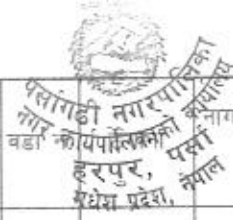 पर्सागढी नगरपालिका
नगर कार्यपालिकाको कार्यालय
वडा न
नाग
हरपुर, पर्सा
मधेश प्रदेश, नेपाल